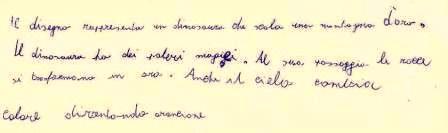 Il disegno rappresenta un dinosauro che scala una montagna d'oro.
Il dinosauro ha dei poteri magici. Al suo passaggio le rocce
si trasformano in oro. Anche il cielo cambia
colore diventando arancione